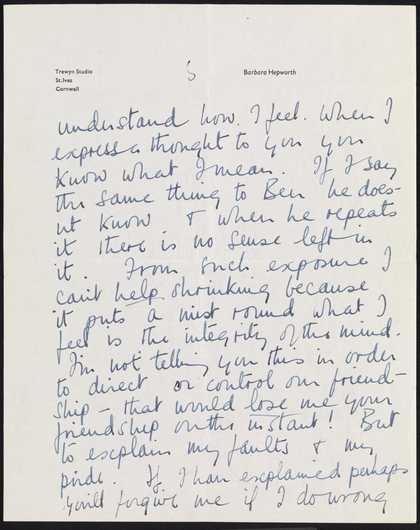 Trewyn Studio
St. Ives
Cornwall
Barbara Hepworth
understand how I feel. When I
express a thought to you you
know what I mean. If I say
the same thing to Ben he does-
nt know & when he repeats
it there is no sense left in
it. From such exposure I
cant help shrinking because
it puts a mist round what I
feel is the integrity of the mind.
I'm not telling you this in order
to direct or control our friend-
ship – that would lose me your
friendship on the instant! But
to explain my faults & my
pride. If I have explained perhaps
you'll forgive me if I do wrong